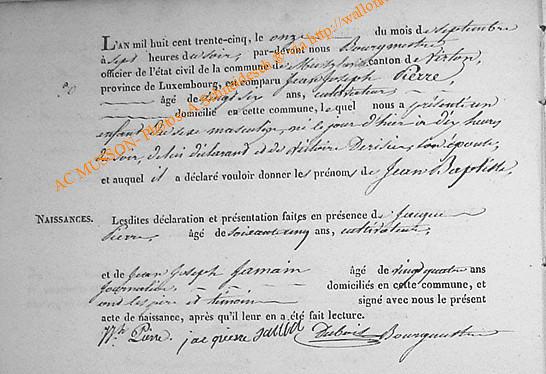 L'AN mil huit cent trente-cinq, le onze du mois de septembre
à sept heures du soir, par-devant nous Bourgmestre
officier de l'état civil de la commune de canton de Virton,
province de Luxembourg, est comparu Jean Joseph Pierre
âgé de vingt six ans, cultivateur
domicilié en cette commune, lequel nous a présenté un
enfant du sexe masculin, né le jour d'hier à dix heures
du soir, de lui déclarant et de son épouse,
et auquel il a déclaré vouloir donner les prénoms de Jean Baptiste
NAISSANCES. Lesdites déclaration et présentation faites en présence de Jacque
Pierre, âgé de soixante cinq ans, cultivateur,
et de Jean Joseph Jamain âgé de vingt quatre ans
journalier, domiciliés en cette commune, et
ont les père et témoin signé avec nous le présent
acte de naissance, après qu'il leur en a été fait lecture.
Pierre. Dubois Bourgmestre
AC MUSSON- Photos A. http://wallo